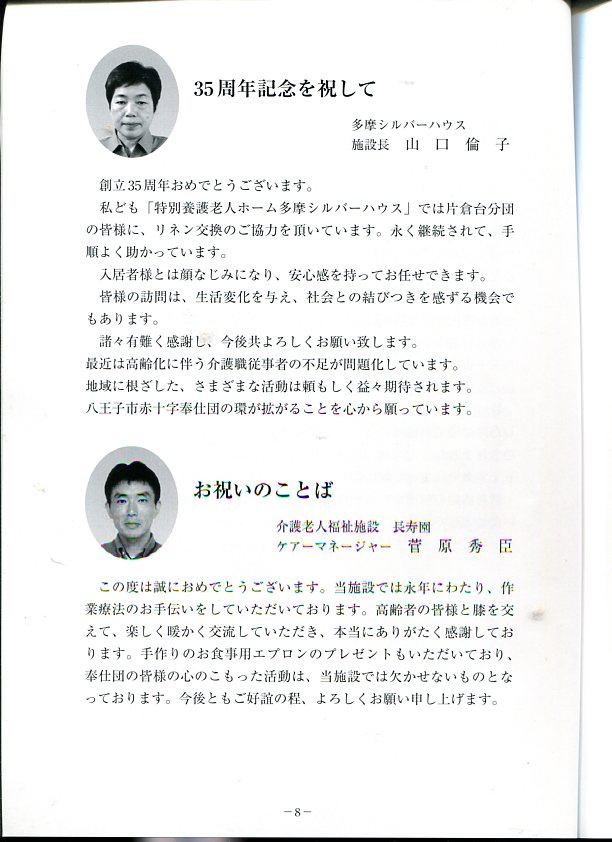 35周年記念を祝して
多摩シルバーハウス
施設長 山口倫子
創立35周年おめでとうございます。
私ども「特別養護老人ホーム多摩シルバーハウス」では片倉台分団
の皆様に、リネン交換のご協力を頂いています。永く継続されて、手
順よく助かっています。
入居者様とは顔なじみになり、安心感を持ってお任せできます。
皆様の訪問は、生活変化を与え、社会との結びつきを感ずる機会で
もあります。
諸々有難く感謝し、今後共よろしくお願い致します。
最近は高齢化に伴う介護職従事者の不足が問題化しています。
地域に根ざした、さまざまな活動は頼もしく益々期待されます。
八王子市赤十字奉仕団の環が拡がることを心から願っています。
お祝いのことば
介護老人福祉施設 長寿園
ケアーマネージャー 菅原秀臣
この度は誠におめでとうございます。当施設では永年にわたり、作
業療法のお手伝いをしていただいております。高齢者の皆様と膝を交
えて、楽しく暖かく交流していただき、本当にありがたく感謝してお
ります。手作りのお食事用エプロンのプレゼントもいただいており、
奉仕団の皆様の心のこもった活動は、当施設では欠かせないものとな
っております。今後ともご好誼の程、よろしくお願い申し上げます。
－8－